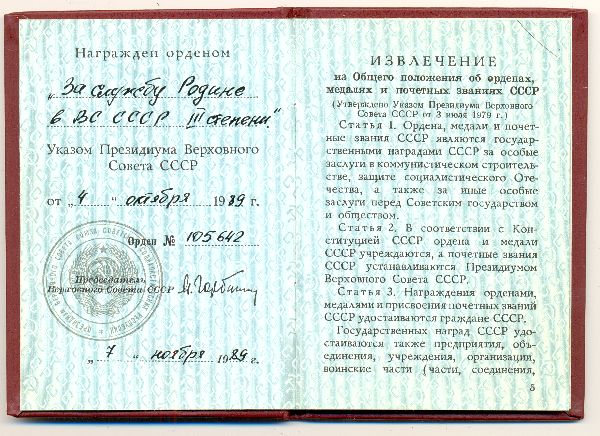 Награжден орденом
„За службу Родине
в ВС СССР III степени"
Указом Президиума Верховного
Совета СССР
от „4" октября 1989 г.
Орден № 105642
Председатель
Верховного Совета СССР
„7" ноября 1989 г.
ИЗВЛЕЧЕНИЕ
из Общего положения об орденах,
медалях и почетных званиях СССР
(Утверждено Указом Президиума Верховного
Совета СССР от 3 июля 1979 г.)
Статья 1. Ордена, медали и почет-
ные звания СССР являются госу-
дарственными наградами СССР за особые
заслуги в коммунистическом строитель-
стве, защите социалистического Оте-
чества, а также за иные особые
заслуги перед Советским государством
и обществом.
Статья 2. В соответствии с Кон-
ституцией СССР ордена и медали
СССР учреждаются, а почетные звания
СССР устанавливаются Президиумом
Верховного Совета СССР.
Статья 3. Награждения орденами,
медалями и присвоения почетных званий
СССР удостаиваются граждане СССР.
Государственных наград СССР удо-
стаиваются также предприятия, объ-
единения, учреждения, организации,
воинские части (части, соединения,
5